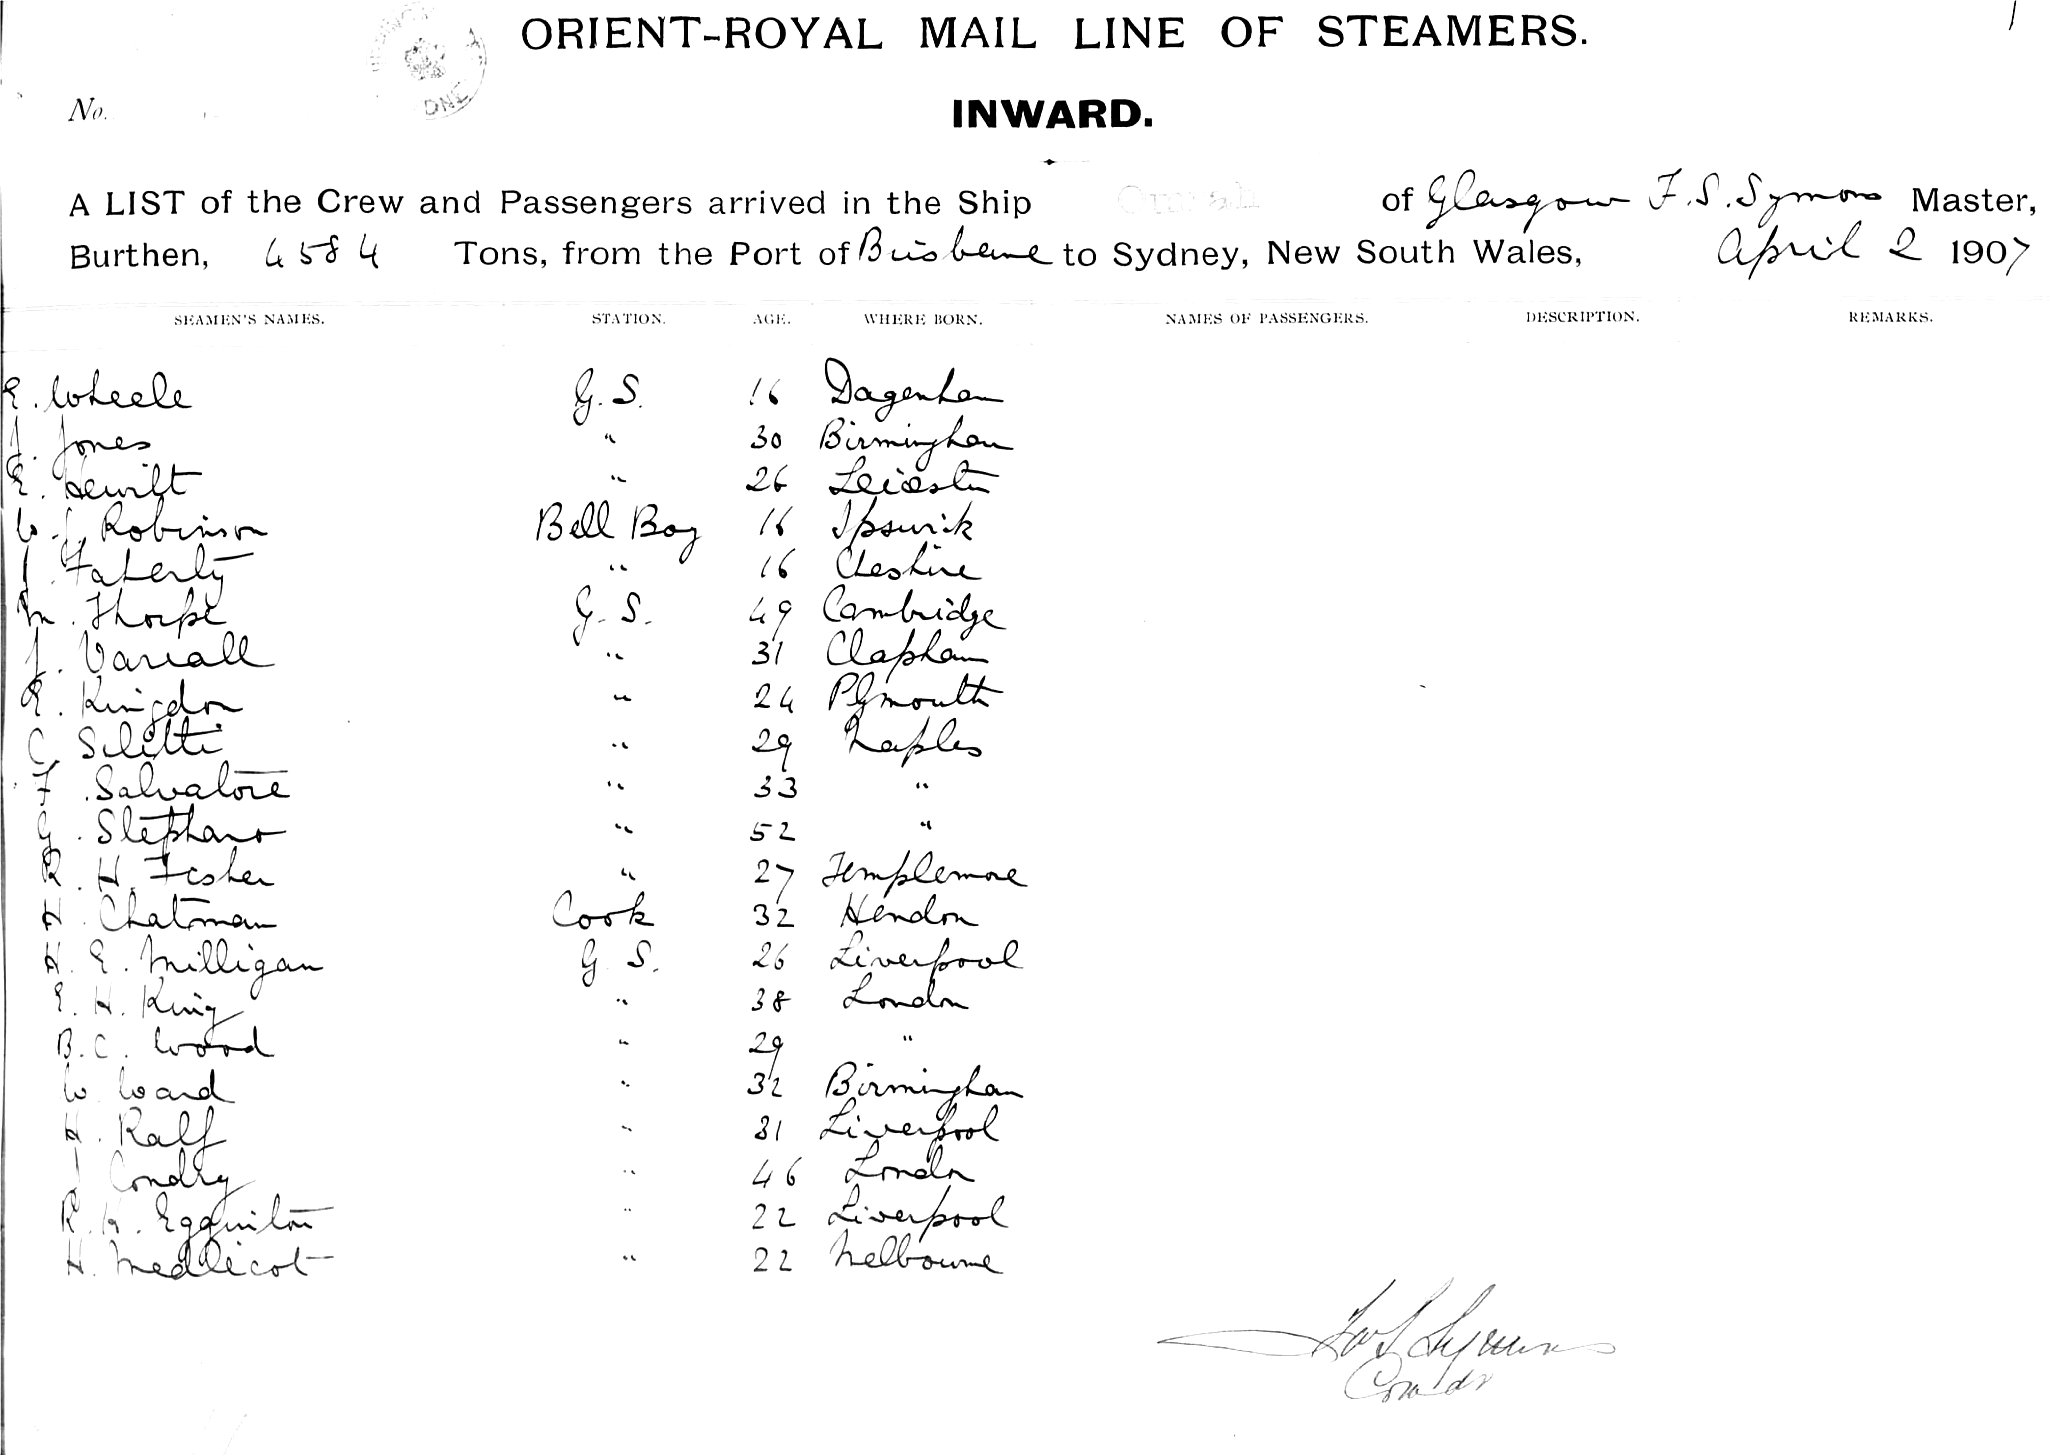 ORIENT-ROYAL MAIL LINE OF STEAMERS.
No.
INWARD.
A LIST of the Crew and Passengers arrived in the Ship of Glasgow F. S. Symons Master,
Burthen, 4584 Tons, from the Port of Brisbane to Sydney, New South Wales, April 2 1907
SEAMEN'S NAMES. STATION. AGE. WHERE BORN. NAMES OF PASSENGERS. DESCRIPTION. REMARKS.
E. Wheele G. S. 16 Dagenham
J. Jones " 30 Birmingham
E. Hewitt " 26 Leicester
W. J. Robinson Bell Boy 16 Ipswick
J. Faherty " 16 Cheshire
M. Thorpe G. S. 49 Cambridge
J. Variall " 31 Clapham
E. Kingdon " 24 Plymouth
C. Silitti " 29 Naples
F. Salvatore " 33 "
G. Stephano " 52 "
R. H. Fisher " 27 Templemore
H. Chatman Cook 32 Hendon
H. E. Milligan G. S. 26 Liverpool
E. H. King " 38 London
B. C. Wood " 29 "
W. Ward " 32 Birmingham
H. Ralf " 31 Liverpool
J. Condry " 46 London
R. H. Egguiton " 22 Liverpool
H. Medlicot " 22 Melbourne
Symons
Comdr